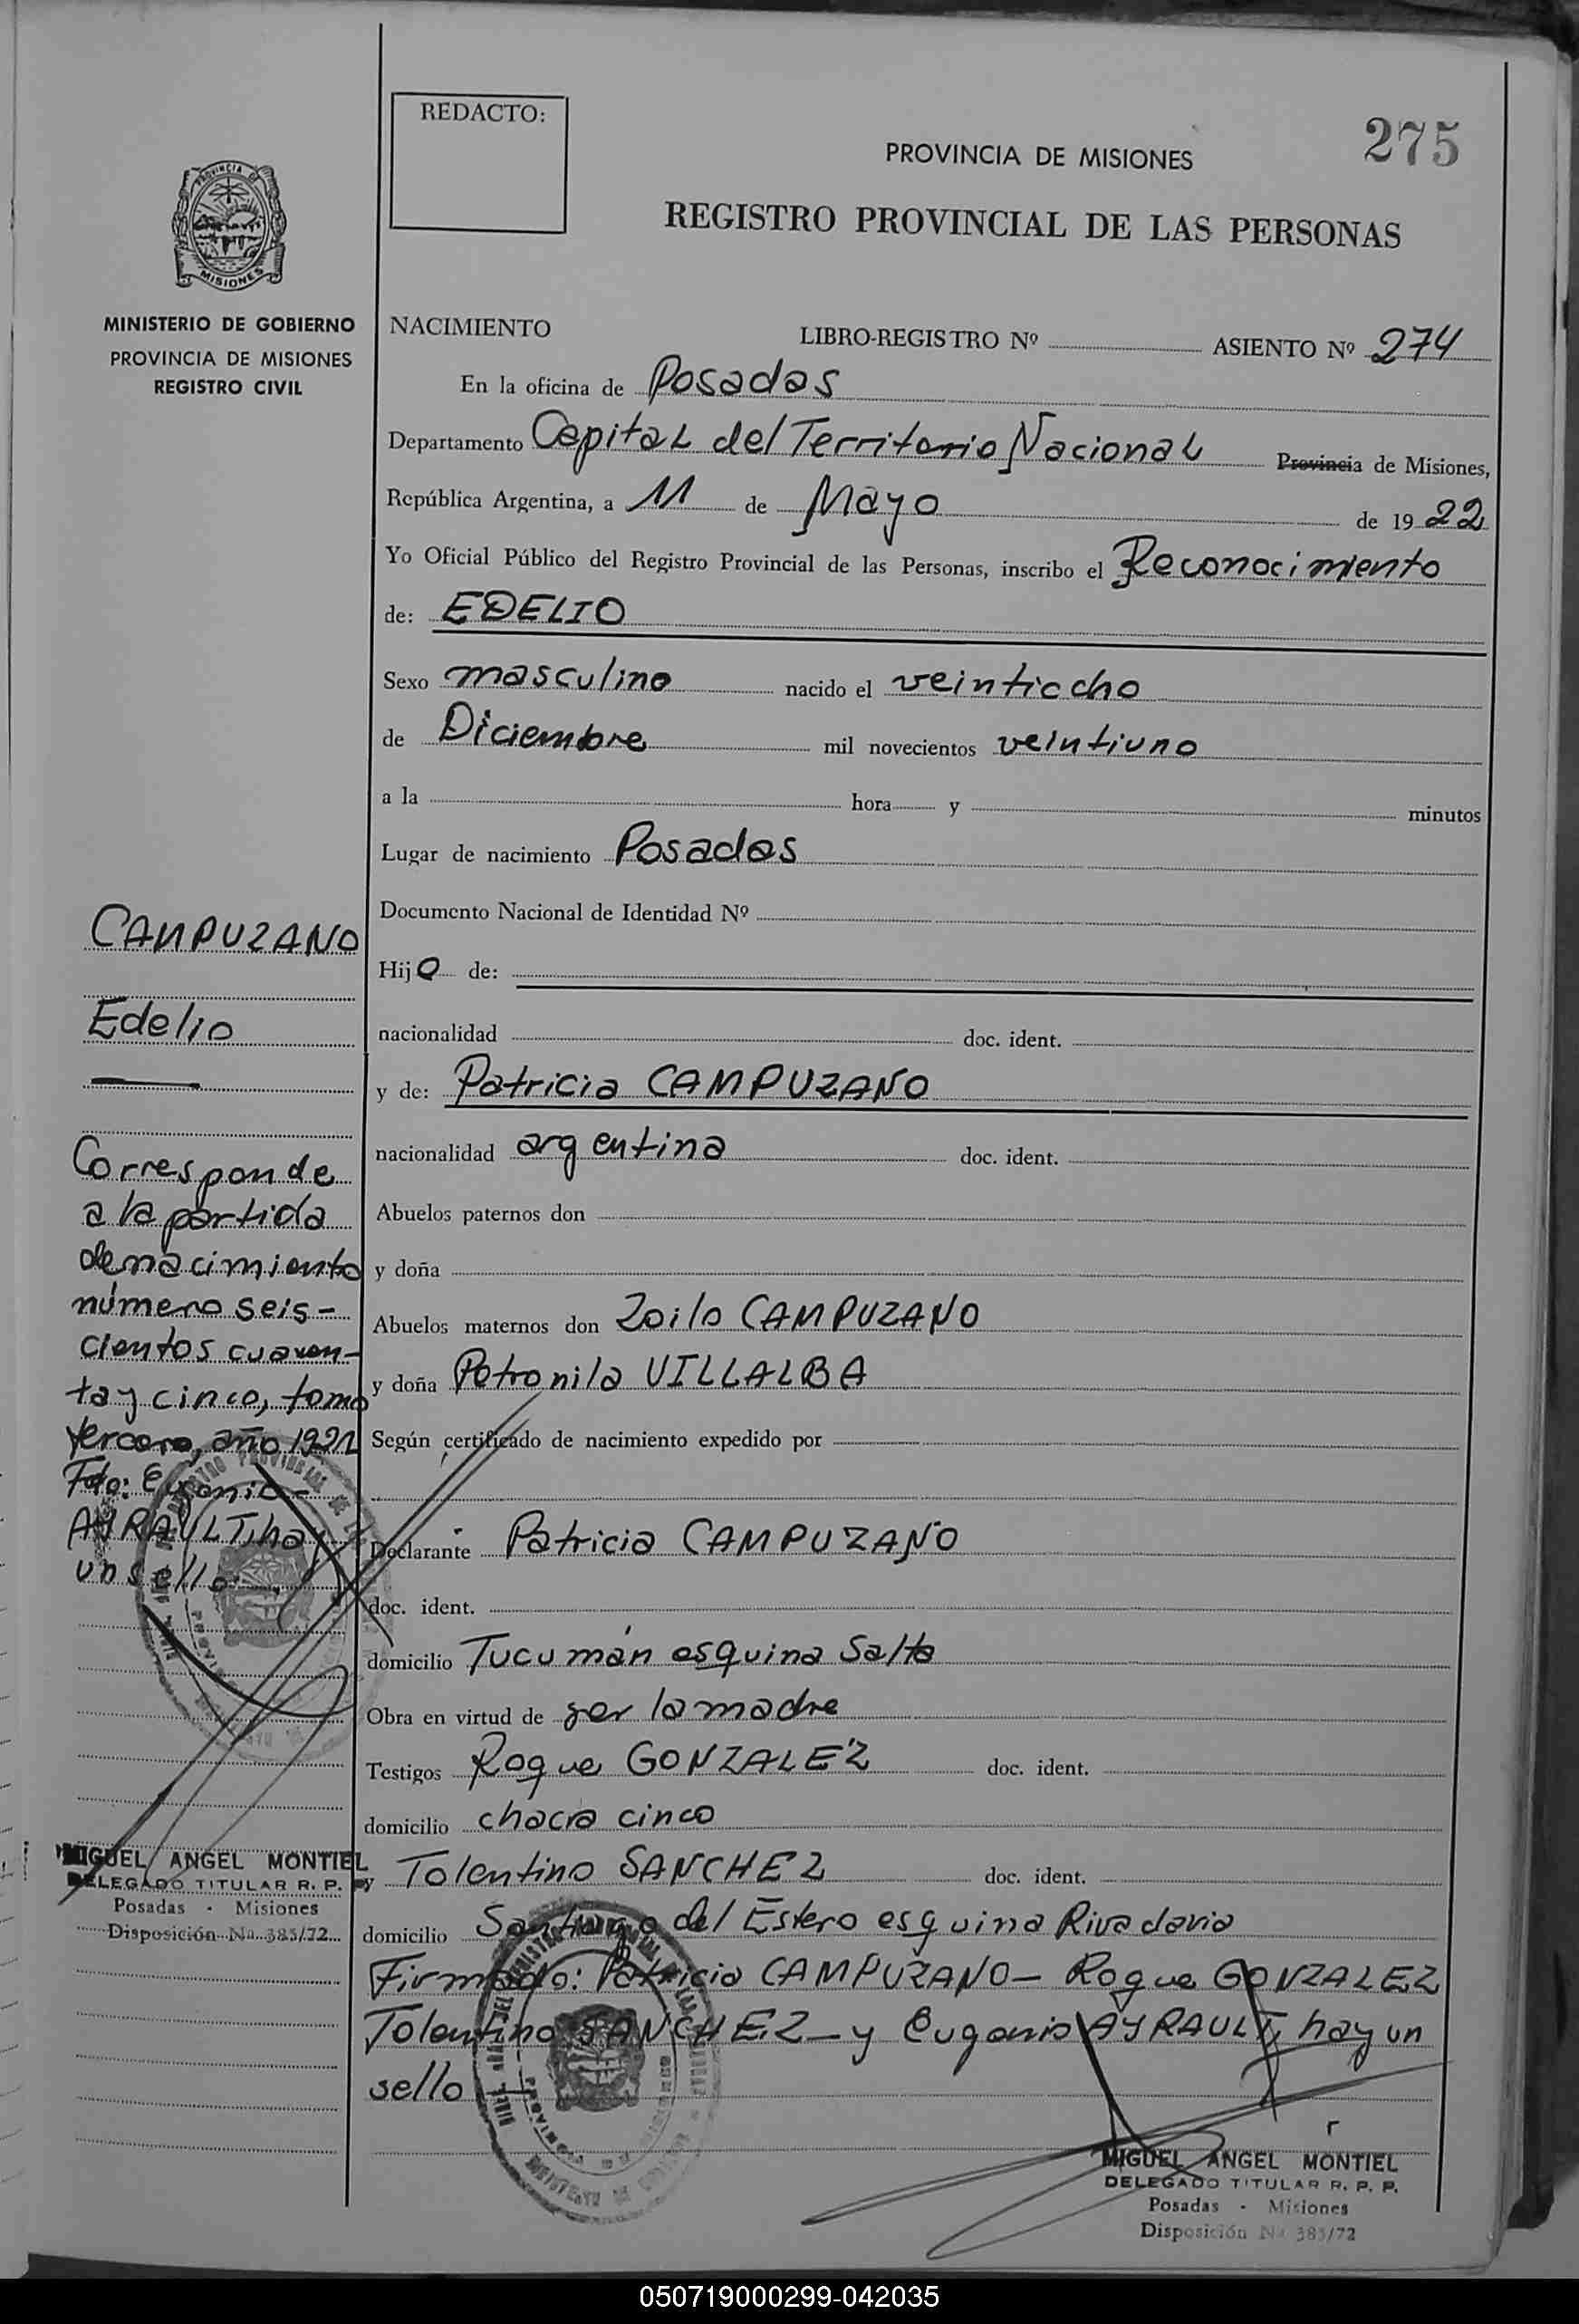 REDACTO:
275
PROVINCIA DE MISIONES
REGISTRO PROVINCIAL DE LAS PERSONAS
PROVINCIA DE
MISIONES
MINISTERIO DE GOBIERNO
PROVINCIA DE MISIONES
REGISTRO CIVIL
NACIMIENTO LIBRO-REGISTRO Nº ASIENTO Nº 274
En la oficina de Posadas
Departamento Capital del Territorio Nacional Provincia de Misiones,
República Argentina, a 11 de Mayo de 1922
Yo Oficial Público del Registro Provincial de las Personas, inscribo el Reconocimiento
de: EDELIO
Sexo masculino nacido el veintiocho
de Diciembre mil novecientos veintiuno
a la hora y minutos
Lugar de nacimiento Posadas
Documento Nacional de Identidad Nº
Hijo de:
nacionalidad doc. ident.
y de: Patricia CAMPUZANO
nacionalidad argentina doc. ident.
Abuelos paternos don
y doña
Abuelos maternos don Zoilo CAMPUZANO
y doña Petronila VILLALBA
Según certificado de nacimiento expedido por
Declarante Patricia CAMPUZANO
doc. ident.
domicilio Tucumán esquina Salta
Obra en virtud de ser la madre
Testigos Roque GONZALEZ doc. ident.
domicilio chacra cinco
y Tolentino SANCHEZ doc. ident.
domicilio Santiago del Estero esquina Rivadavia
Firmado: Patricia CAMPUZANO - Roque GONZALEZ
Tolentino SANCHEZ - y Eugenio AYRAULT, hay un
sello
CAMPUZANO
Edelio
Corresponde
a la partida
de nacimiento
número seis-
cientos cuaren-
ta y cinco, tomo
tercero, año 1921
Fdo: Eugenio
AYRAULT, hay
un sello.
MIGUEL ANGEL MONTIEL
DELEGADO TITULAR R. P. P.
Posadas - Misiones
Disposición Nº 385/72
MIGUEL ANGEL MONTIEL
DELEGADO TITULAR R. P. P.
Posadas - Misiones
Disposición Nº 385/72
050719000299-042035